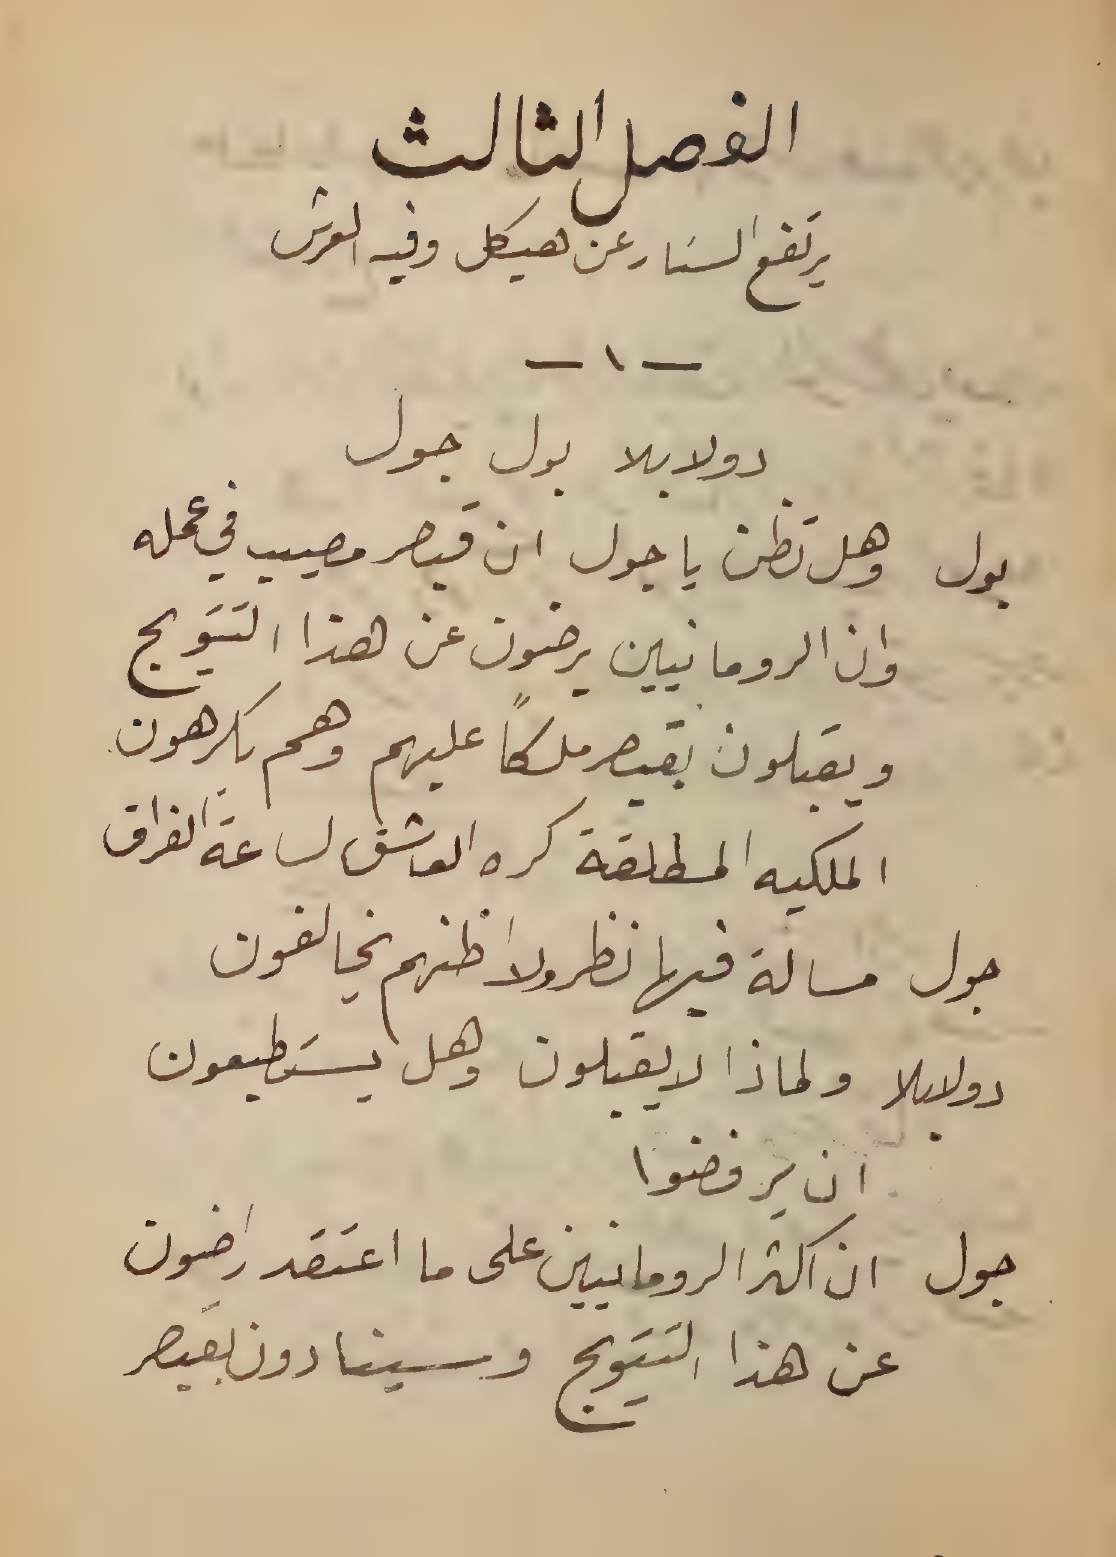 الفصل الثالث
يرتفع الستار عن هيكل وفيه العرش
— ١ —
دولابلا بول جول
بول وهل تظن يا جول ان قيصر مصيب في عمله
وان الرومانيين يرضون عن هذا التتويج
ويقبلون بقيصر ملكاً عليهم وهم يكرهون
الملكيه المطلقة كره العاشق لساعة الفراق
جول مسالة فيها نظر ولا اظنهم يخالفون
دولابلا ولماذا لا يقبلون وهل يستطيعون
ان يرفضوا
جول ان اكثر الرومانيين على ما اعتقد راضون
عن هذا التتويج وسينادون بقيصر